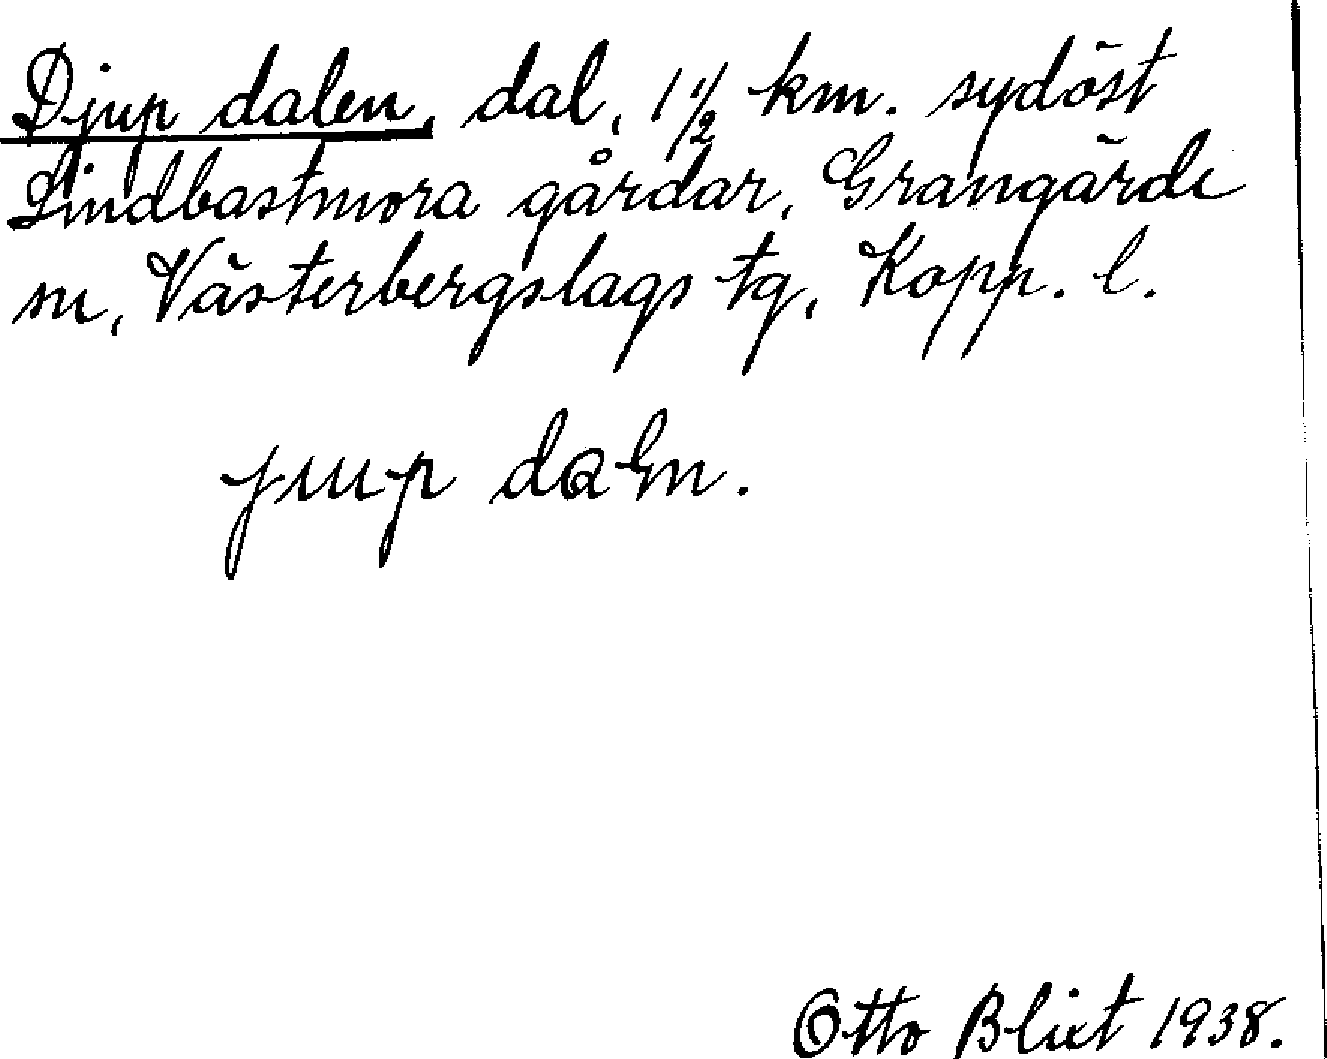 Djup dalen, dal, 1 1/2 km. sydöst
Lindbastmora gårdar, Grangärde
sn, Västerbergslags tg, Kopp. l.
Otto Blixt 1938.